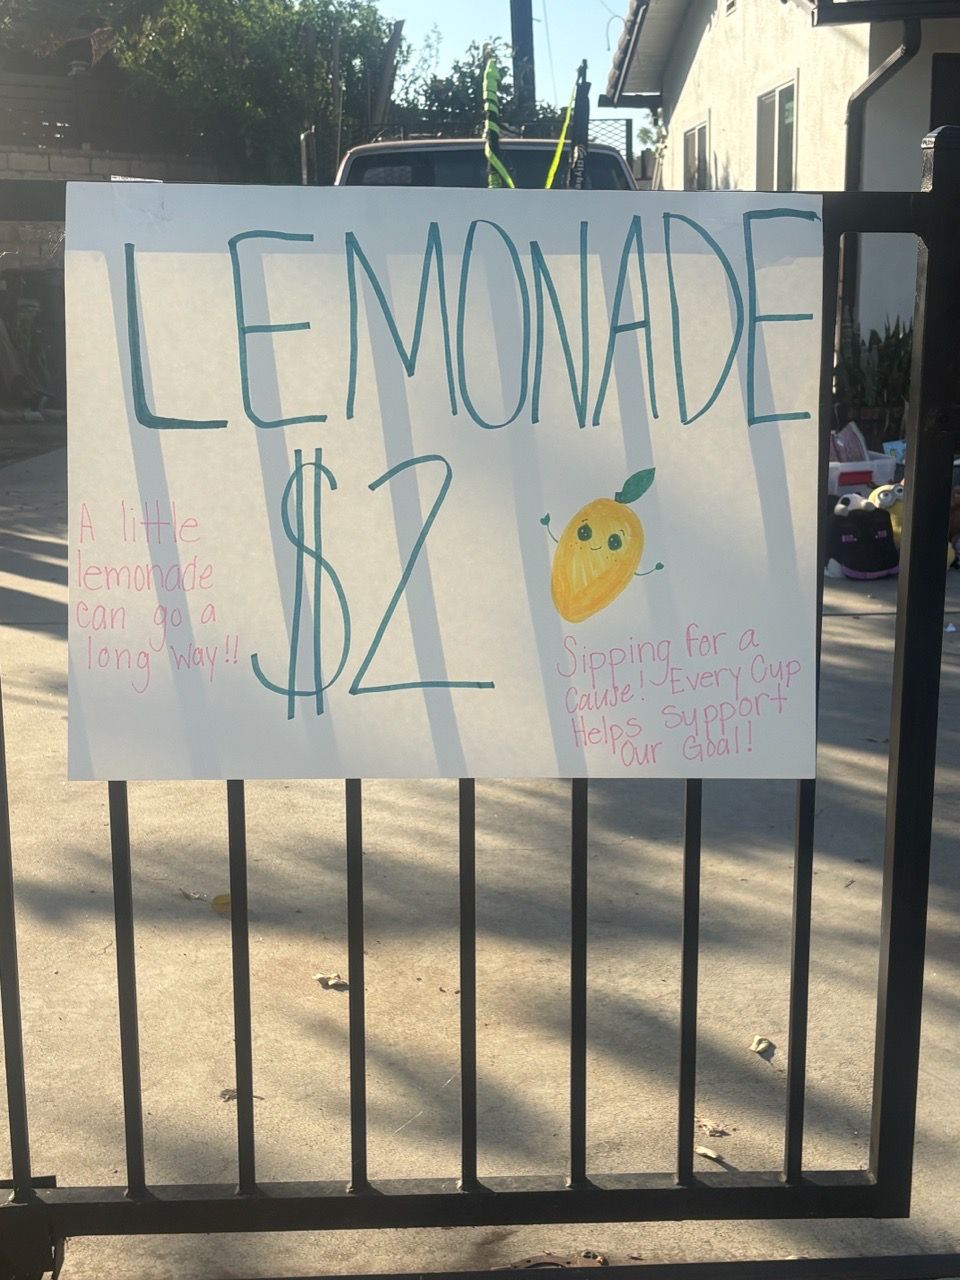 LEMONADE
$2
A little
lemonade
can go a
long way!!
Sipping for a
cause! Every Cup
Helps Support
Our Goal!